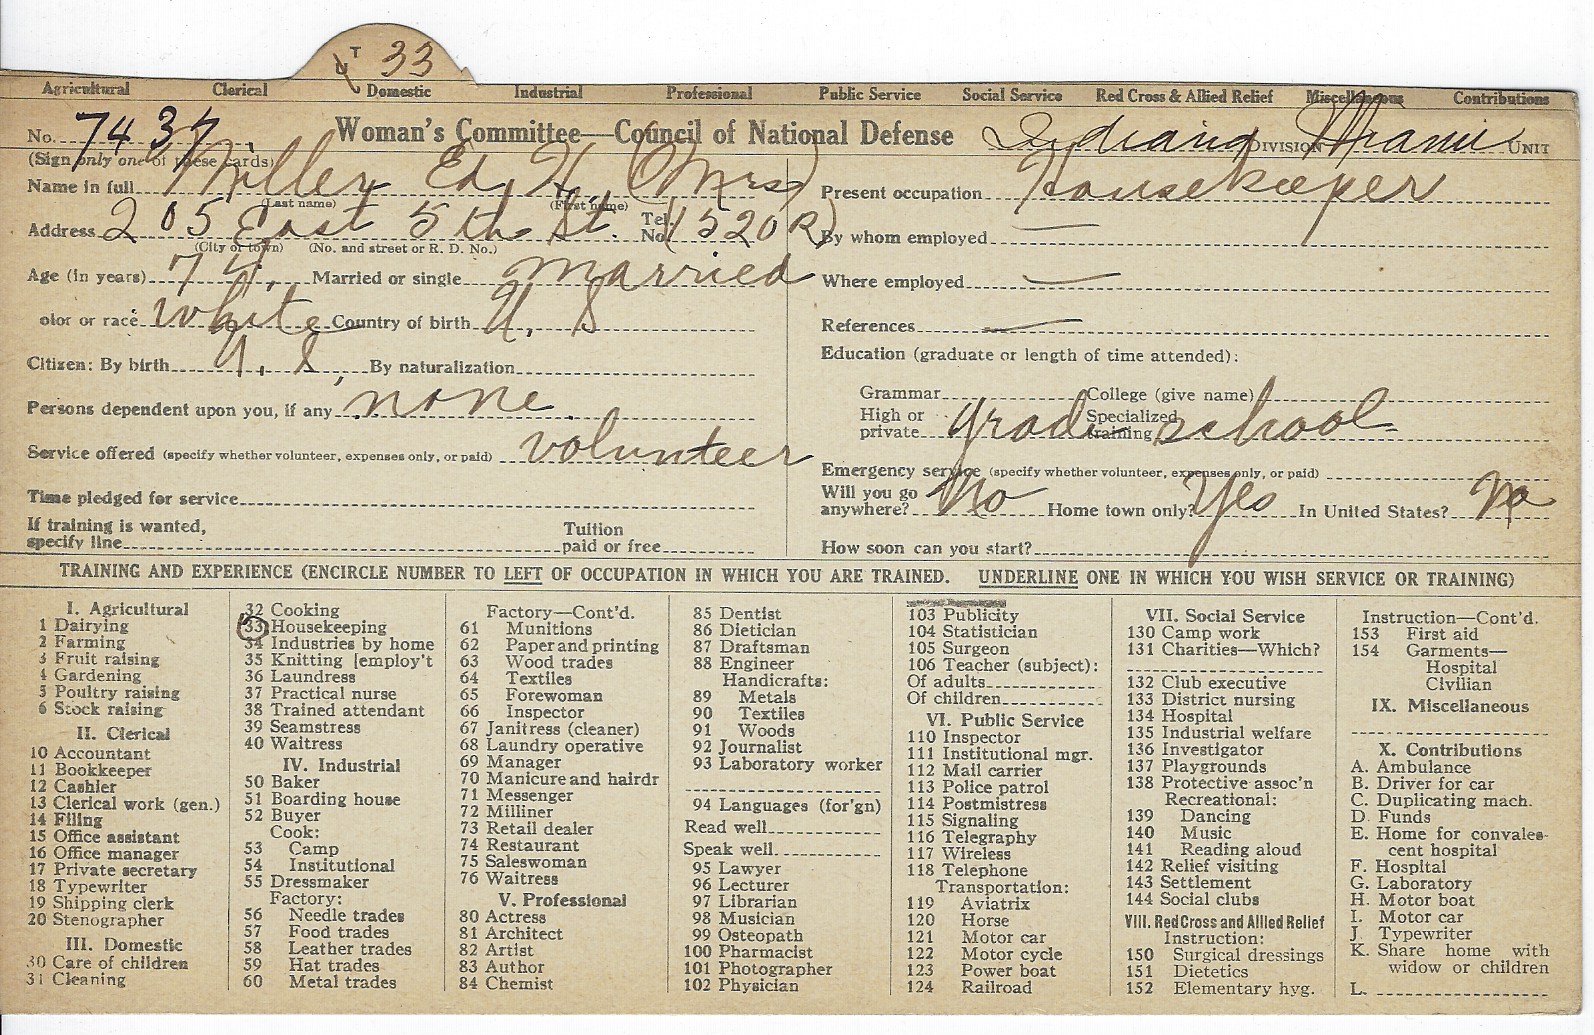 U T 33
Agricultural Clerical Domestic Industrial Professional Public Service Social Service Red Cross & Allied Relief Miscellaneous Contributions
No. 7437 Woman's Committee—Council of National Defense Indiana DIVISION Miami UNIT
(Sign only one of these cards)
Name in full Miller Ed. H. (Mrs)
(Last name) (First name)
Address 205 East 5th St. Tel. No. (1520R)
(City or town) (No. and street or R. D. No.)
Age (in years) 74. Married or single married
olor or race white Country of birth U. S
Citizen: By birth U. S, By naturalization
Persons dependent upon you, if any none.
Service offered (specify whether volunteer, expenses only, or paid) volunteer
Time pledged for service
If training is wanted,
specify line Tuition paid or free
Present occupation Housekeeper
By whom employed —
Where employed —
References —
Education (graduate or length of time attended):
Grammar College (give name)
High or private grade Specialized training school
Emergency service (specify whether volunteer, expenses only, or paid)
Will you go anywhere? No Home town only? Yes In United States? No
How soon can you start?
TRAINING AND EXPERIENCE (ENCIRCLE NUMBER TO LEFT OF OCCUPATION IN WHICH YOU ARE TRAINED. UNDERLINE ONE IN WHICH YOU WISH SERVICE OR TRAINING)
I. Agricultural
1 Dairying
2 Farming
3 Fruit raising
4 Gardening
5 Poultry raising
6 Stock raising
II. Clerical
10 Accountant
11 Bookkeeper
12 Cashier
13 Clerical work (gen.)
14 Filing
15 Office assistant
16 Office manager
17 Private secretary
18 Typewriter
19 Shipping clerk
20 Stenographer
III. Domestic
30 Care of children
31 Cleaning
32 Cooking
33 Housekeeping
34 Industries by home
35 Knitting [employ't
36 Laundress
37 Practical nurse
38 Trained attendant
39 Seamstress
40 Waitress
IV. Industrial
50 Baker
51 Boarding house
52 Buyer
Cook:
53 Camp
54 Institutional
55 Dressmaker
Factory:
56 Needle trades
57 Food trades
58 Leather trades
59 Hat trades
60 Metal trades
Factory—Cont'd.
61 Munitions
62 Paper and printing
63 Wood trades
64 Textiles
65 Forewoman
66 Inspector
67 Janitress (cleaner)
68 Laundry operative
69 Manager
70 Manicure and hairdr
71 Messenger
72 Milliner
73 Retail dealer
74 Restaurant
75 Saleswoman
76 Waitress
V. Professional
80 Actress
81 Architect
82 Artist
83 Author
84 Chemist
85 Dentist
86 Dietician
87 Draftsman
88 Engineer
Handicrafts:
89 Metals
90 Textiles
91 Woods
92 Journalist
93 Laboratory worker
94 Languages (for'gn)
Read well
Speak well
95 Lawyer
96 Lecturer
97 Librarian
98 Musician
99 Osteopath
100 Pharmacist
101 Photographer
102 Physician
103 Publicity
104 Statistician
105 Surgeon
106 Teacher (subject):
Of adults
Of children
VI. Public Service
110 Inspector
111 Institutional mgr.
112 Mail carrier
113 Police patrol
114 Postmistress
115 Signaling
116 Telegraphy
117 Wireless
118 Telephone
Transportation:
119 Aviatrix
120 Horse
121 Motor car
122 Motor cycle
123 Power boat
124 Railroad
VII. Social Service
130 Camp work
131 Charities—Which?
132 Club executive
133 District nursing
134 Hospital
135 Industrial welfare
136 Investigator
137 Playgrounds
138 Protective assoc'n
Recreational:
139 Dancing
140 Music
141 Reading aloud
142 Relief visiting
143 Settlement
144 Social clubs
VIII. Red Cross and Allied Relief
Instruction:
150 Surgical dressings
151 Dietetics
152 Elementary hyg.
Instruction—Cont'd.
153 First aid
154 Garments—
Hospital
Civilian
IX. Miscellaneous
X. Contributions
A. Ambulance
B. Driver for car
C. Duplicating mach.
D. Funds
E. Home for convales-
cent hospital
F. Hospital
G. Laboratory
H. Motor boat
I. Motor car
J. Typewriter
K. Share home with
widow or children
L.